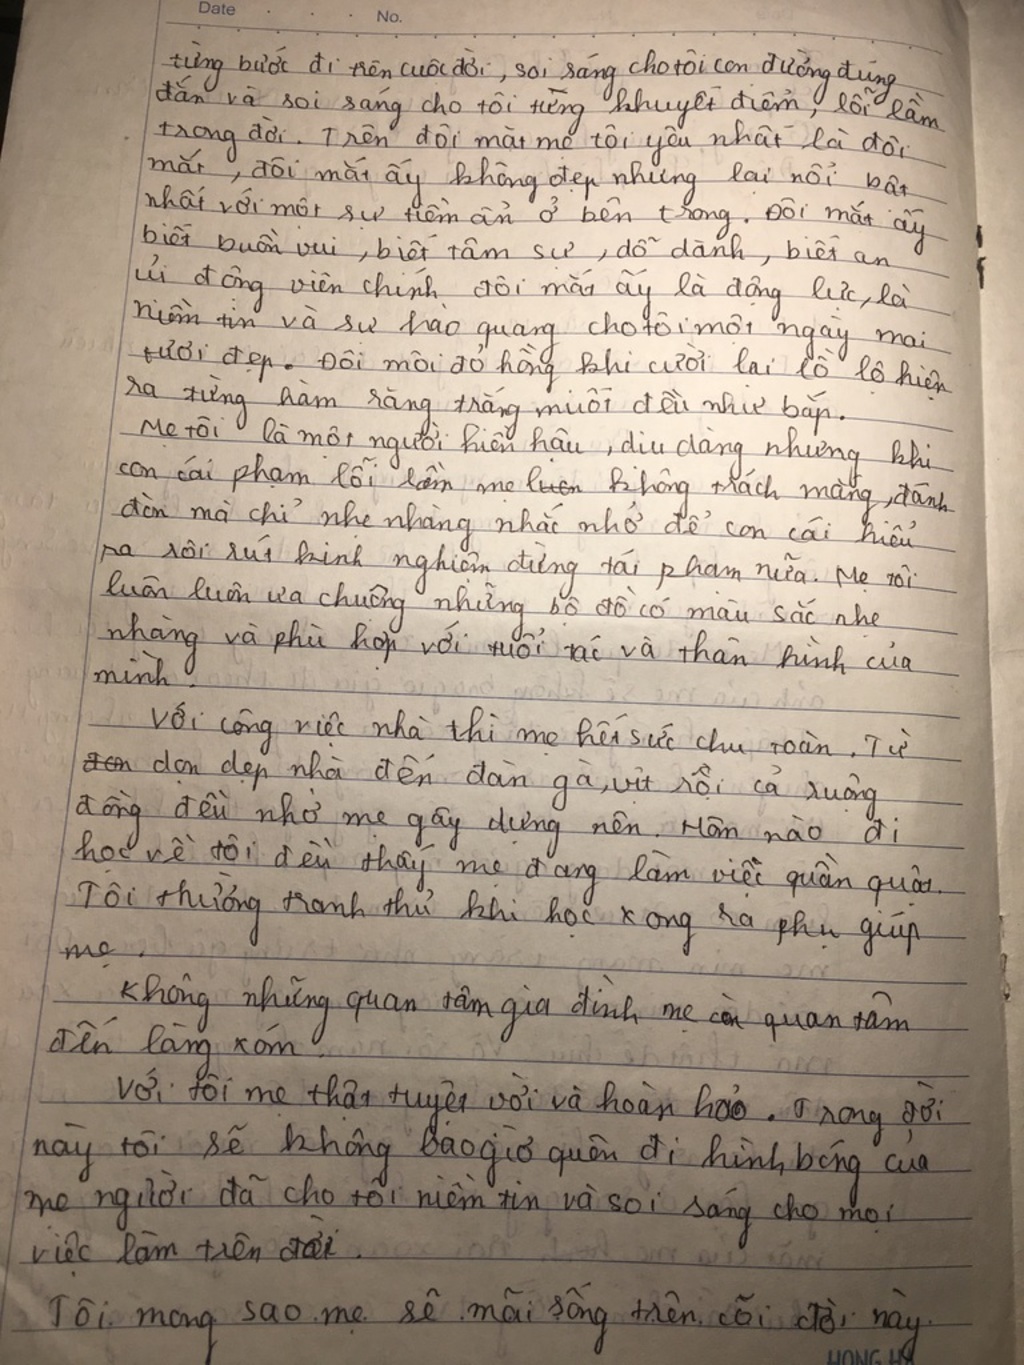 Date
No.
từng bước đi trên cuôc đời, soi sáng cho tôi con đường đúng
đắn và soi sáng cho tôi từng khuyết điểm, lỗi lầm
trong đời. Trên đôi mắt mẹ tôi yêu nhất là đôi
mắt, đôi mắt ấy không đẹp nhưng lại nổi bật
nhất với một sự tiềm ẩn ở bên trong. Đôi mắt ấy
biết buồn vui, biết tâm sự, dỗ dành, biết an
ủi động viên chính đôi mắt ấy là động lực, là
niềm tin và sự hào quang cho tôi một ngày mai
tươi đẹp. Đôi môi đỏ hồng khi cười lại lồ lộ hiện
ra từng hàm răng trắng muốt đều như bắp.
Mẹ tôi là một người hiền hậu, dịu dàng nhưng khi
con cái phạm lỗi lầm mẹ luôn không trách mắng, đánh
đòn mà chỉ nhẹ nhàng nhắc nhở để con cái hiểu
ra rồi rút kinh nghiệm đừng tái phạm nữa. Mẹ tôi
luôn luôn ưa chuộng những bộ đồ có màu sắc nhẹ
nhàng và phù hợp với tuổi tác và thân hình của
mình.
Với công việc nhà thì mẹ hết sức chu toàn. Từ
dọn dẹp nhà đến đàn gà, vịt rồi cả ruộng
đồng đều nhờ mẹ gây dựng nên. Hôm nào đi
học về tôi đều thấy mẹ đang làm việc quần quật.
Tôi thường tranh thủ khi học xong ra phụ giúp
mẹ.
Không những quan tâm gia đình mẹ còn quan tâm
đến làng xóm.
Với tôi mẹ thật tuyệt vời và hoàn hảo. Trong đời
này tôi sẽ không bao giờ quên đi hình bóng của
mẹ người đã cho tôi niềm tin và soi sáng cho mọi
việc làm trên đời.
Tôi mong sao mẹ sẽ mãi sống trên cõi đời này.
HONG HA